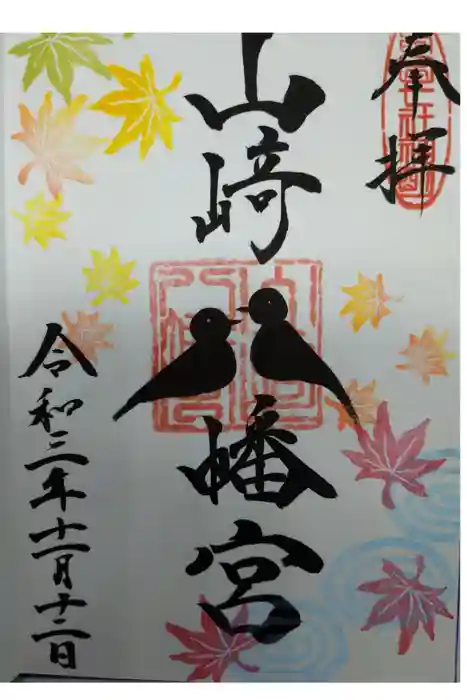 奉拝
山崎八幡宮
令和三年十一月十二日